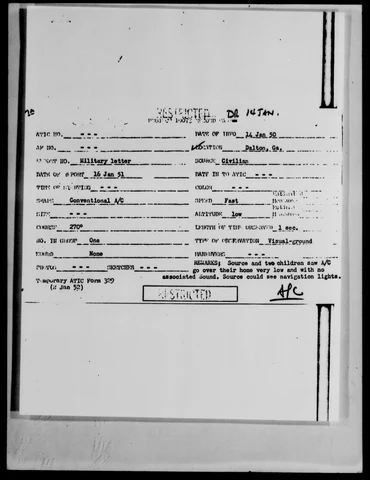 RESTRICTED DR 14 JAN.
ATIC NO. - - - DATE OF INFO 14 Jan 50
AF NO. - - - LOCATION Dalton, Ga.
REPORT NO. Military letter SOURCE Civilian
DATE OF REPORT 16 Jan 51 DATE IN TO ATIC - - -
TIME OF SIGHTING - - - COLOR - - -
SHAPE Conventional A/C SPEED Fast
SIZE - - - ALTITUDE low
COURSE 270° LENGTH OF TIME OBSERVED 1 sec.
NO. IN GROUP One TYPE OF OBSERVATION Visual-ground
SOUND None MANEUVERS - - -
PHOTOS - - - SKETCHES - - - REMARKS; Source and two children saw A/C
go over their home very low and with no
associated sound. Source could see navigation lights.
Temporary ATIC Form 329
(2 Jan 52)
RESTRICTED
A/C